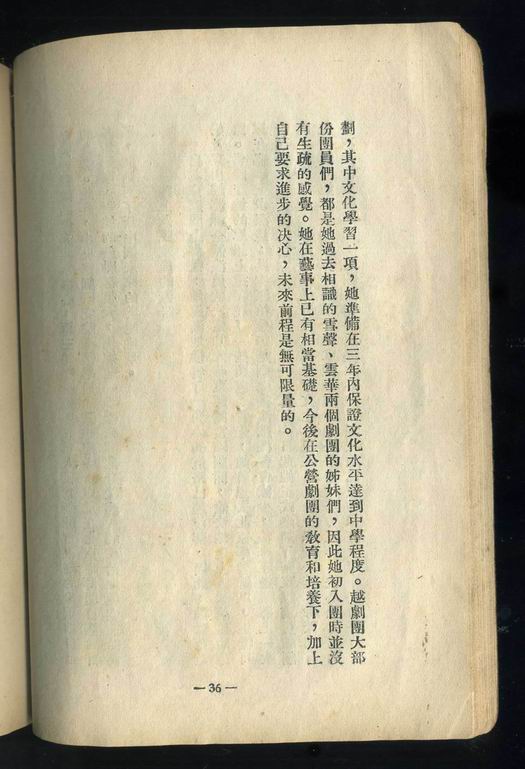 劃，其中文化學習一項，她準備在三年內保證文化水平達到中學程度。越劇團大部
份團員們，都是她過去相識的雪聲、雲華兩個劇團的姊妹們，因此她初入團時並沒
有生疏的感覺。她在藝事上已有相當基礎，今後在公營劇團的教育和培養下，加上
自己要求進步的決心，未來前程是無可限量的。
— 36 —